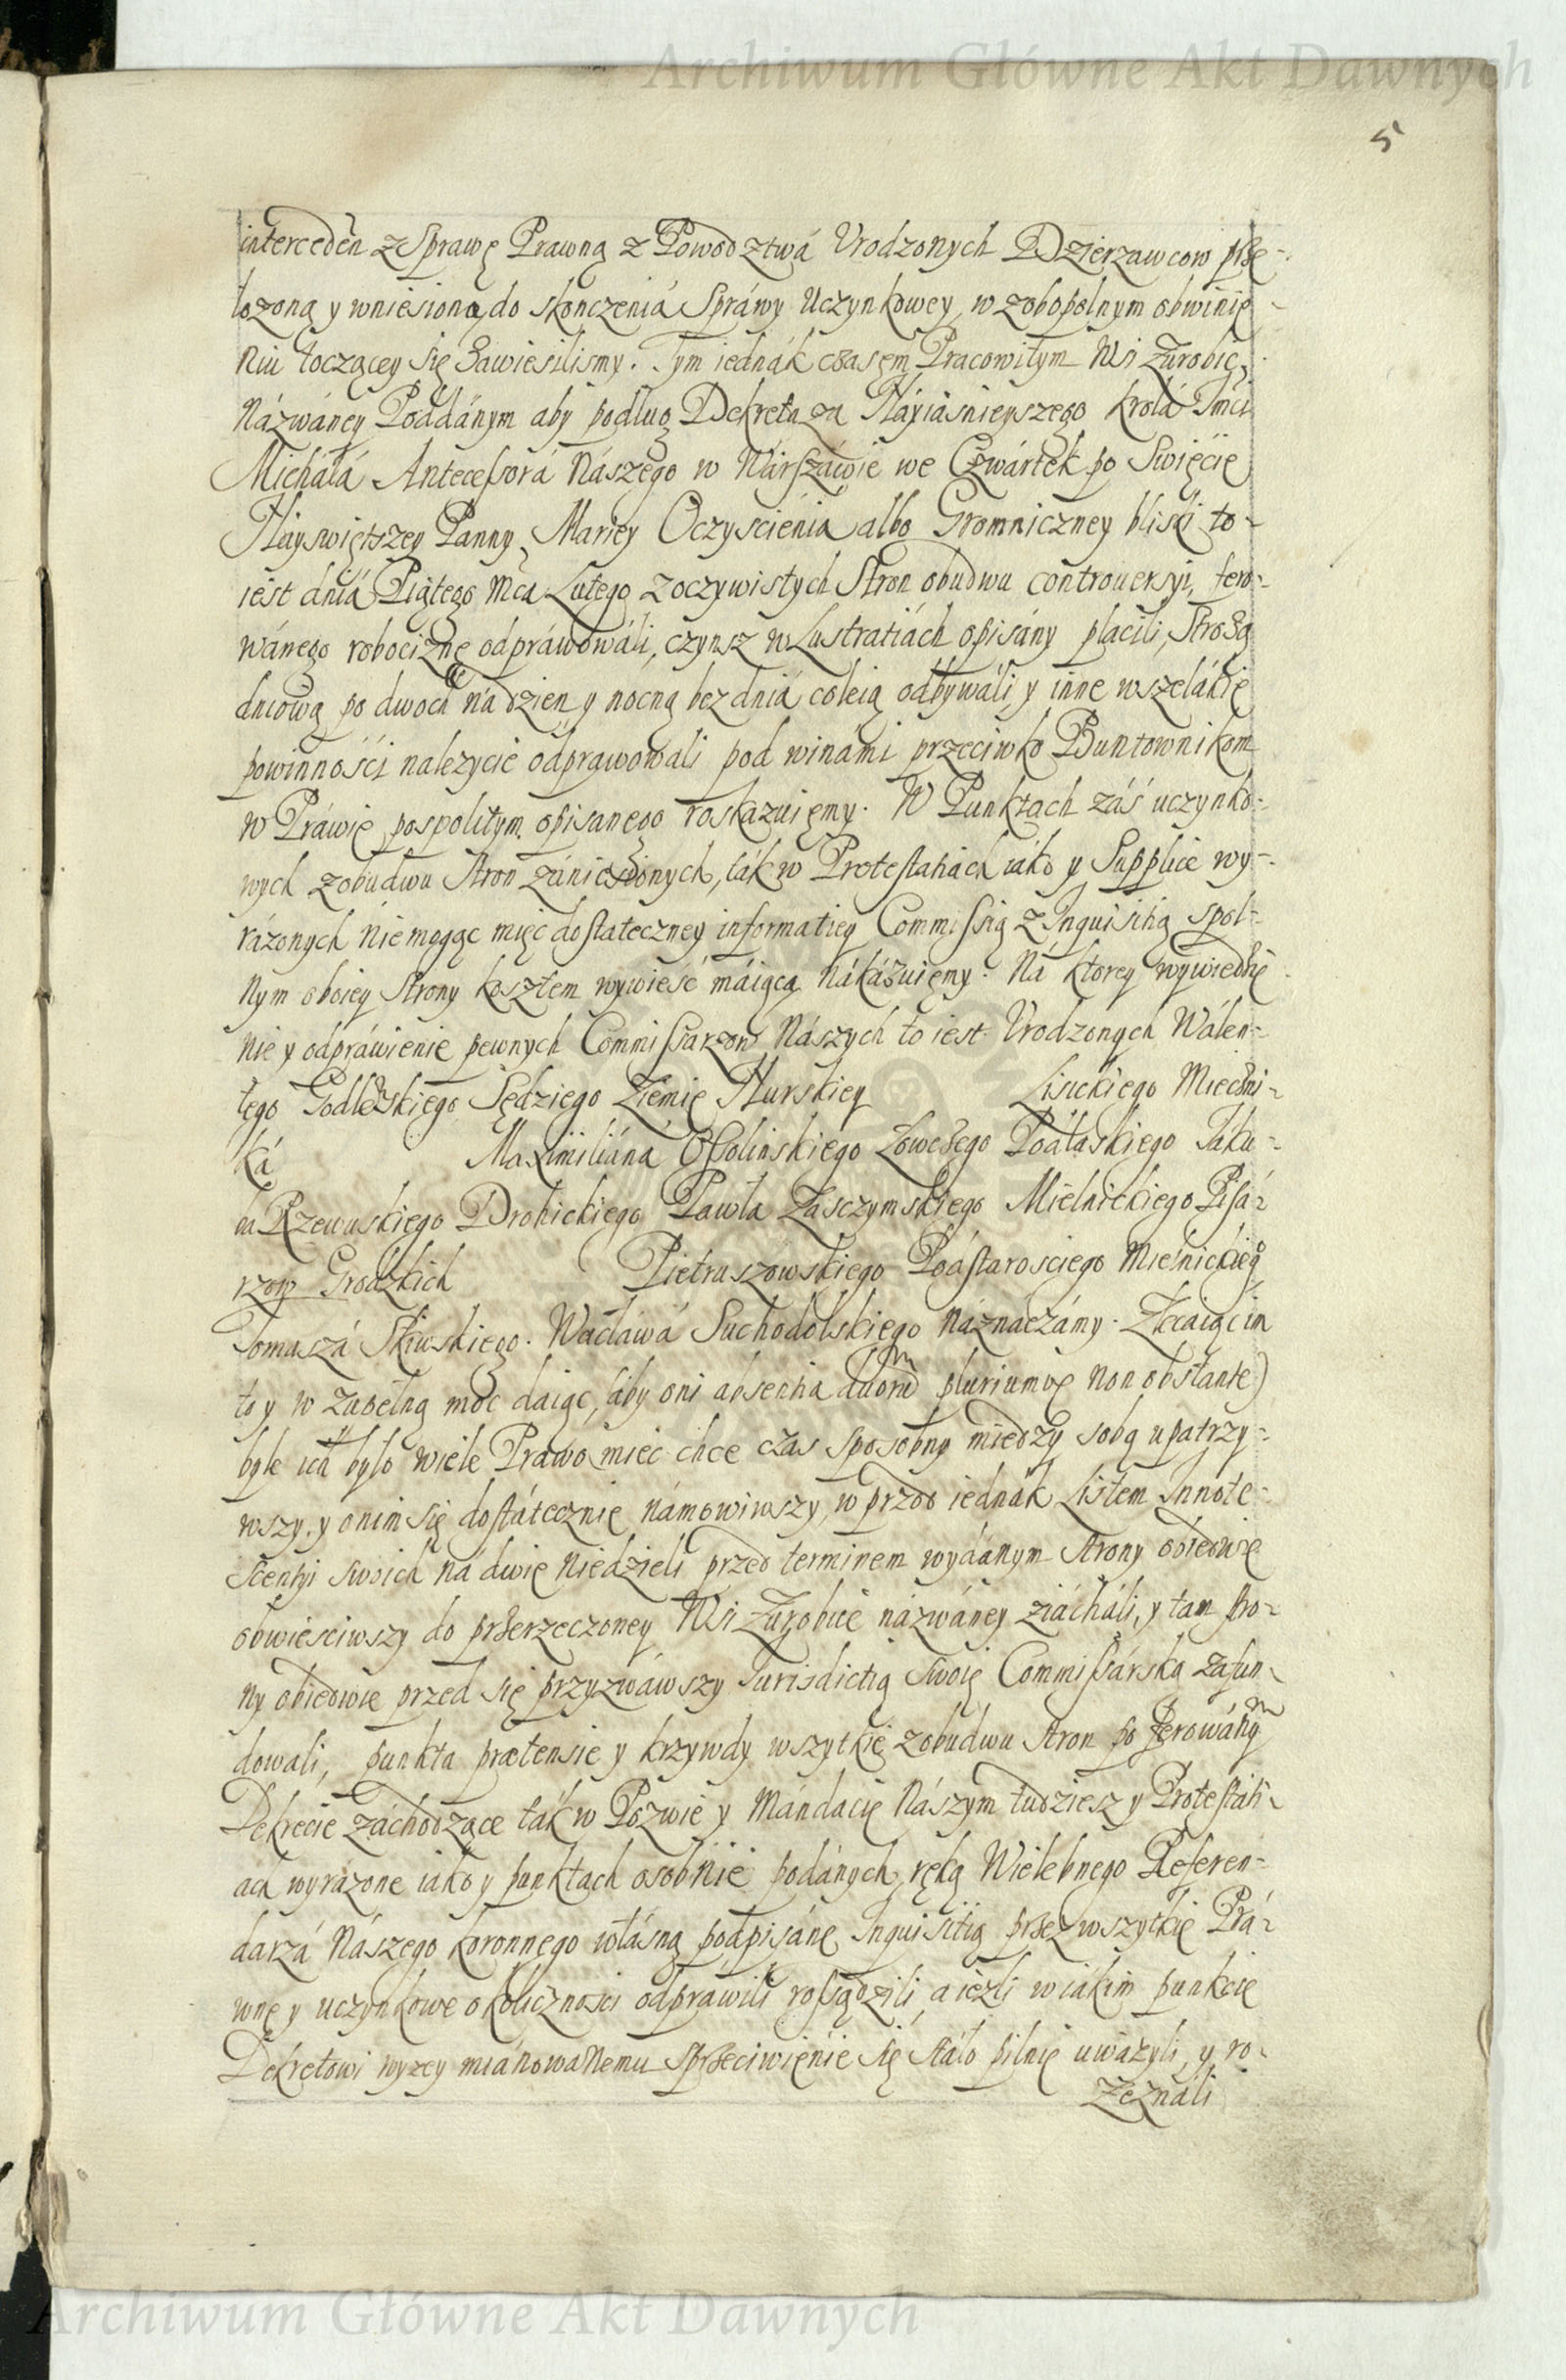 Archiwum Główne Akt Dawnych
5
interceden z Sprawę Prawną z Powodztwá Vrodzonych Dzierzawcow prze-
łozoną y wniesioną do skonczeniá Spráwy Uczynkowey, w zobopolnym obwinie
niu toczącey się zawiesilismy. Tym iednák czasem Pracowitym Wsi Zurobic
Názwáney Poddánym aby podług Dekretu za Náyiáśnieyszego Krolá Jmci
Michałá Antecessorá Nászego w Wárszáwie we Czwártek po Swięcie
Náyswiętszey Panny Mariey Oczyscienia albo Gromniczney bliski to-
iest dniá Piątego Mca Lutego z oczywistych Stron obudwu controuersyi, fero-
wánego robociznę odpráwowáli, czynsz w Lustratiách opisány płacili, Strożą
dniową po dwoch ná dzien y nocną bez dniá coleią odbywáli, y inne wszelákie
powinności nalezycie odprawowali pod winámi przeciwko Buntownikom
w Práwie pospolitym opisanego roskazuiemy. W Punktach záś uczynko-
wych z obudwu Stron zániesionych, ták w Protestatiach iáko y Supplice wy-
rázonych niemogąc mięc dostateczney informatiey Commissią z Inquisitią spol-
nym oboiey Strony kosztem wywieść máiącą nákázuiemy. Ná ktorey wywiedze
nie y odpráwienie pewnych Commissarzow Nászych to iest Vrodzonych Wálen-
tego Godlewskiego Sędziego Ziemie Nurskiey Lisickiego Miecżni-
ká Maximiliáná Ossolinskiego Łowczego Podlaskiego Jaku-
ba Rzewuskiego Drohickiego Pawła Zasczymskiego Mielnickiego Pisá-
rzow Grodzkich Pietruszowskiego Podstarosciego Mielnickieg°
Tomaszá Skiwskiego. Wacławá Suchodolskiego Náznaczámy. Zlecaiąc im
to y w zupełną moc daiąc, (áby oni absentia duorum pluriumve non obstante)
byle ich było wiele Prawo mieć chce czas sposobny między sobą upatrzy-
wszy, y onim się dostátecznie námowiwszy, w przod iednák Listem Innote-
scentyi swoich ná dwie Niedzieli przed terminem wydánym Strony obiedwie
obwieściwszy do przerzeczoney Wsi Zurobice názwáney ziácháli, y tam stro-
ny obiedwie przed się przyzwáwszy Jurisdictią swoię Commissárską zafun-
dowali, punkta prætensie y krzywdy wszytkie z obudwu Stron po ferowánym
Dekrecie záchodzące ták w Pozwie y Mándacie Nászym tudziesz y Protestati-
ach wyrazone iako y punktach osobnie podánych ręką Wielebnego Referen-
darzá Nászego Koronnego włásną podpisáne Inquisitią przez wszytkie Prá-
wne y uczynkowe okoliczności odpráwili rossądzili, a ieżli w iákim punkcie
Dekretowi wyzey miánowanemu sprzeciwięnie się stało pilnie uwázyli, y ro-
zeználi
Archiwum Główne Akt Dawnych